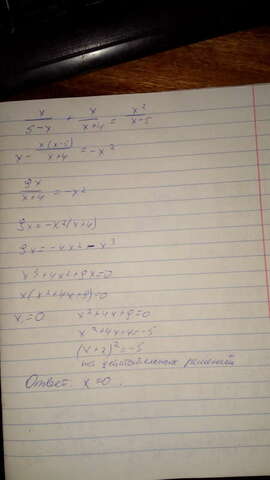 x/(5-x) + x/(x+4) = x²/(x-5)
x - x(x-5)/(x+4) = -x²
9x/(x+4) = -x²
9x = -x²(x+4)
9x = -4x² - x³
x³+4x²+9x=0
x(x²+4x+9)=0
x₁=0 x²+4x+9=0
x²+4x+4=-5
(x+2)²=-5
нет действительных решений
Ответ: x=0.